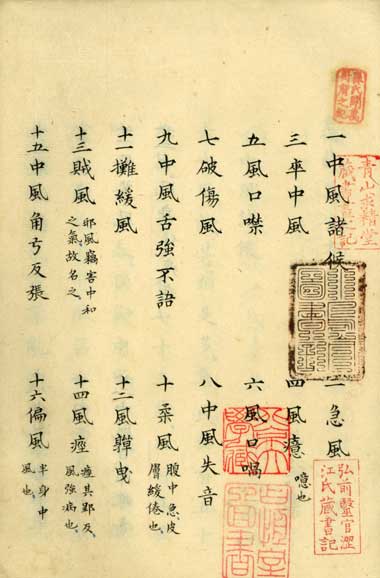 一中風諸候 二急風
三卒中風 四風癔 噫也
五風口噤 六風口喎
七破傷風 八中風失音
九中風舌強不語 十柔風 腹中急皮
膚緩倦也
十一攤緩風 十二風嚲曳
十三賊風 邪風竊害中和
之氣故名之 十四風痙 痙其郢反
風強病也
十五中風角弓反張 十六偏風 半身中
風也
弘前醫官澀
江氏藏書記